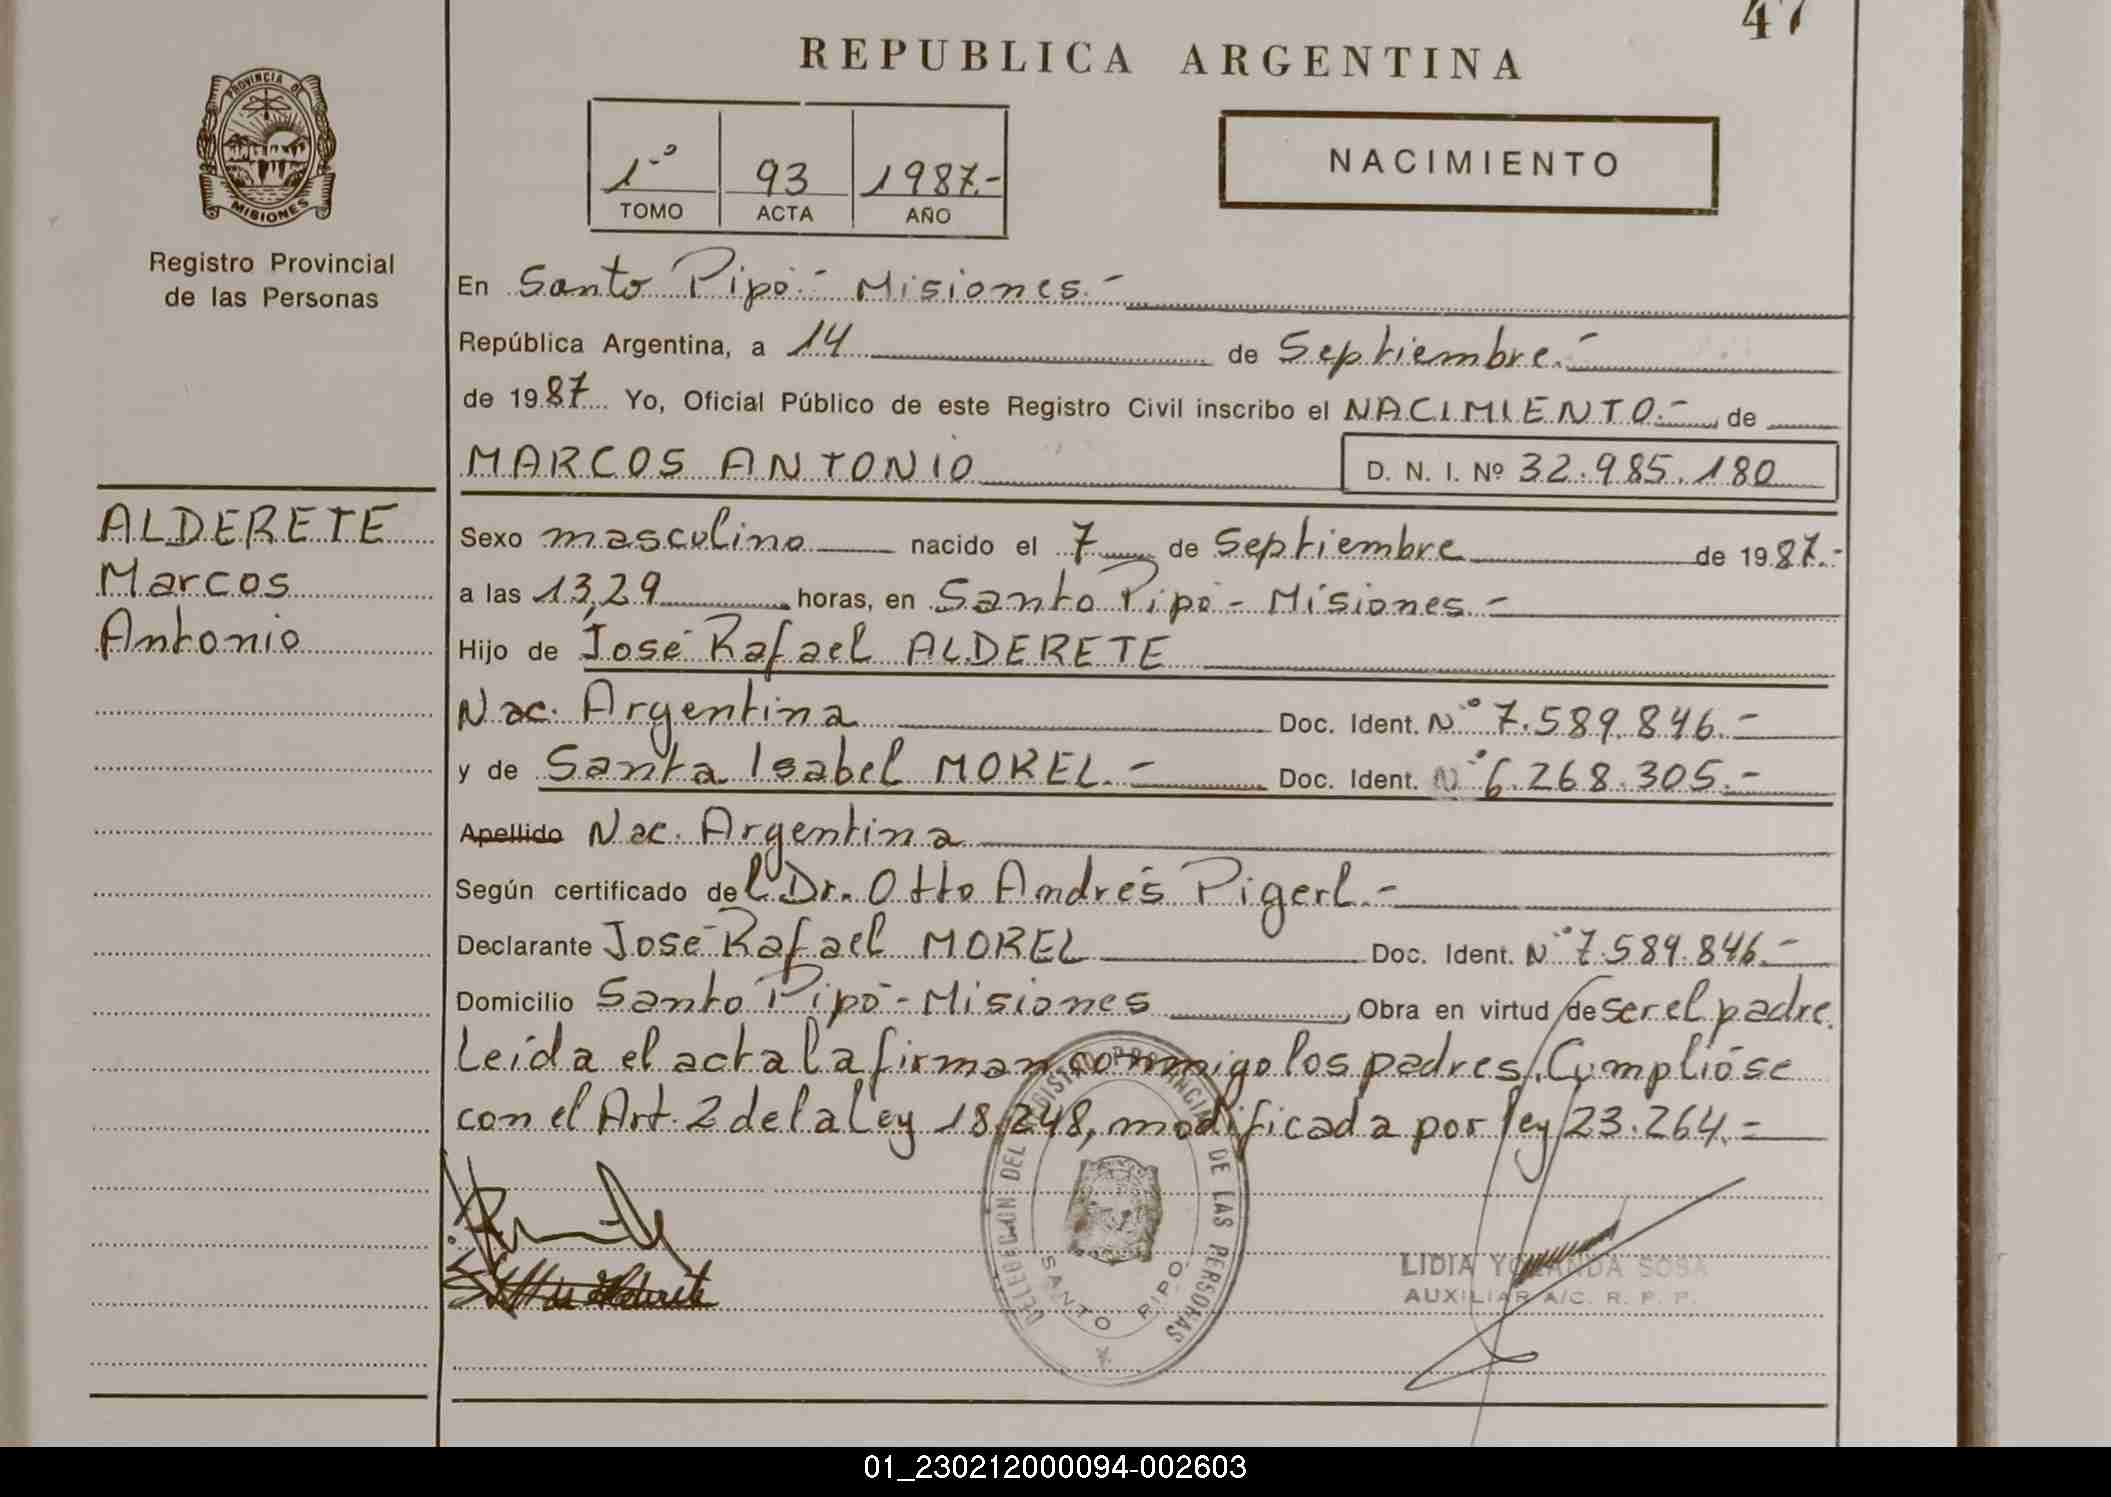 47
REPUBLICA ARGENTINA
PROVINCIA DE
MISIONES
Registro Provincial
de las Personas
1º 93 1987.-
TOMO ACTA AÑO
NACIMIENTO
En Santo Pipó - Misiones.-
República Argentina, a 14 de Septiembre.-
de 1987 Yo, Oficial Público de este Registro Civil inscribo el NACIMIENTO.- de
MARCOS ANTONIO D. N. I. Nº 32.985.180
ALDERETE
Marcos
Antonio
Sexo masculino nacido el 7 de Septiembre de 1987.-
a las 13,29 horas, en Santo Pipó - Misiones.-
Hijo de José Rafael ALDERETE
Nac. Argentina Doc. Ident. Nº 7.589.846.-
y de Santa Isabel MOREL.- Doc. Ident. Nº 6.268.305.-
Apellido Nac. Argentina
Según certificado del Dr. Otto Andrés Pigerl.-
Declarante José Rafael MOREL Doc. Ident. Nº 7.589.846.-
Domicilio Santo Pipó - Misiones, Obra en virtud de ser el padre.
Leída el acta la firman conmigo los padres. Cumplióse
con el Art. 2 de la Ley 18.248, modificada por ley 23.264.=
DELEGACION DEL REGISTRO PROVINCIAL DE LAS PERSONAS
SANTO PIPO
LIDIA YOLANDA SOSA
AUXILIAR A/C. R. P. P.
01_230212000094-002603